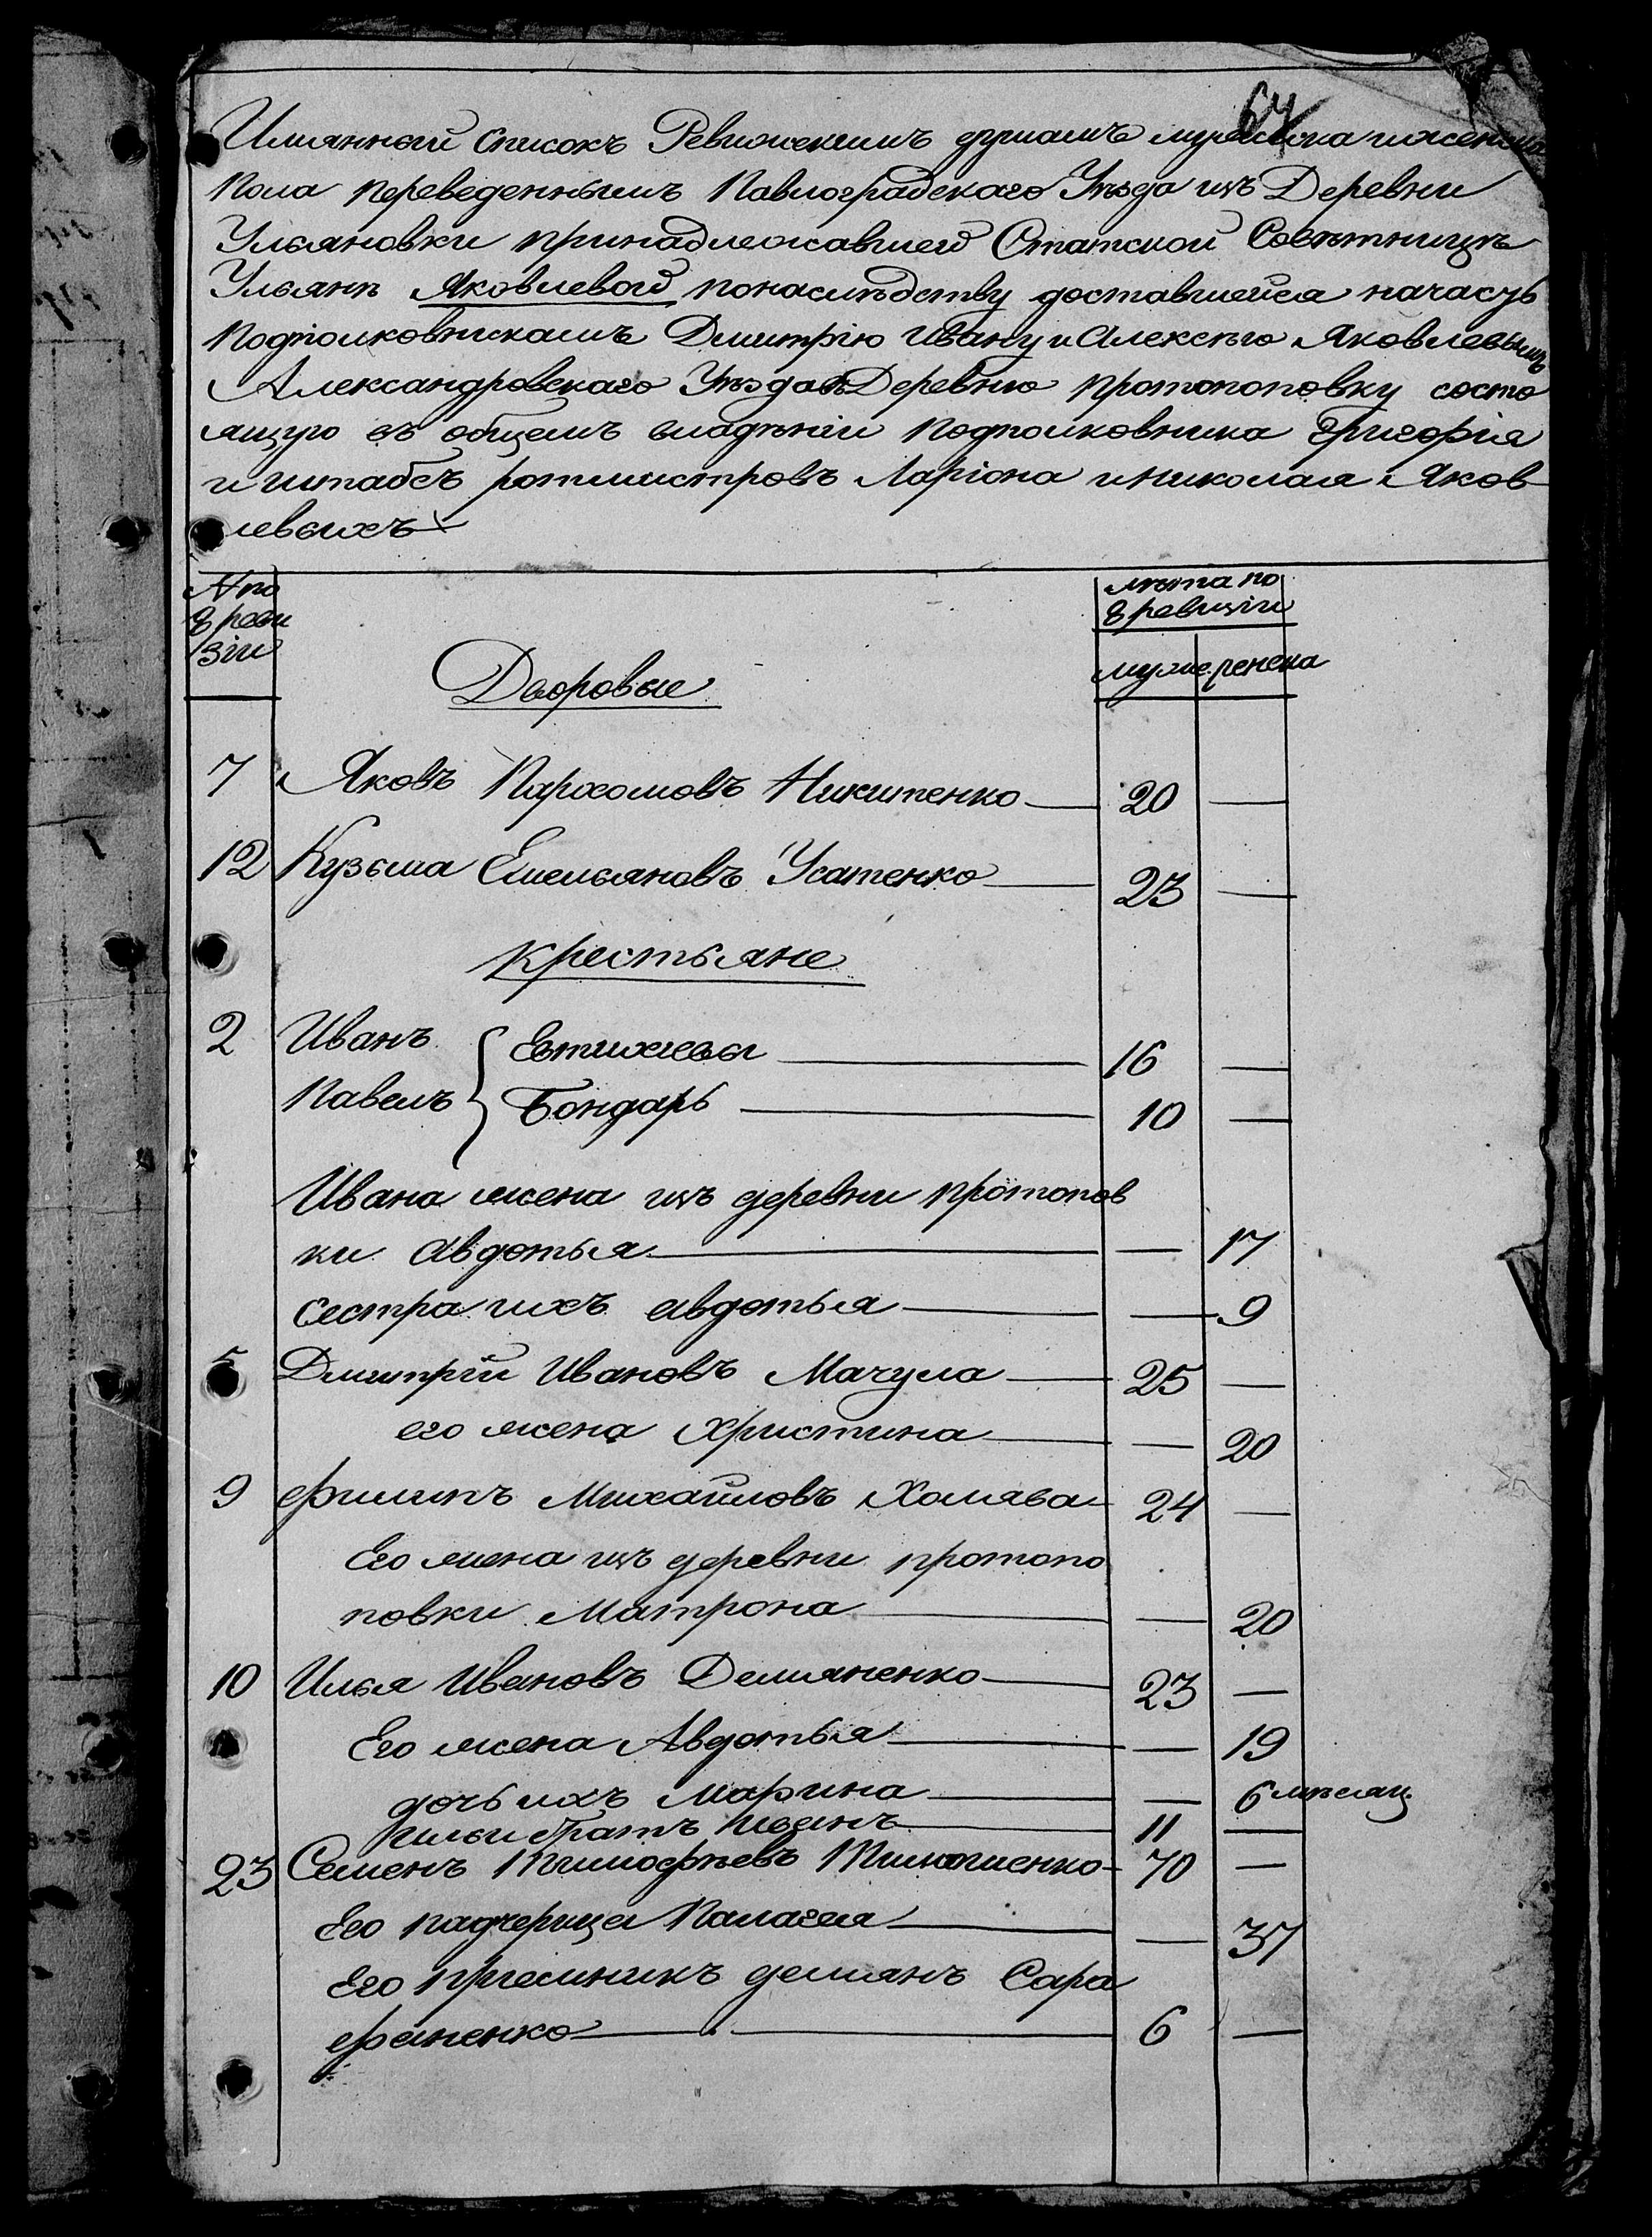 64
Имянный Списокъ Ревижскимъ душамъ мужеска и женска
пола переведеннымъ Павлоградскаго Уѣзда изъ Деревни
Ульяновки принадлежавшей Статской Совѣтницѣ
Ульянѣ Яковлевой понаслѣдству доставшейся начасть
подполковникамъ Дмитрію Ивану и Алексѣю Яковлевымъ
Александровскаго Уѣзда въ Деревню Протопоповку состо
ящую въ общемъ владѣніи подполковника Григорія
и штабсъ ротмистровъ Ларіона и Николая Яков
левыхъ
№ по
8 реви
зіи
лѣта по
8 ревизіи
муже
женска
Дворовые
7 Яковъ Пархомовъ Никитенко 20 —
12 Кузьма Емельяновъ Усатенко 23 —
крестьяне
2 Иванъ Евтихіевы 16 —
Павелъ Бондарь 10 —
Ивана жена изъ деревни протопов
ки Авдотья — 17
сестра ихъ авдотья — 9
5 Дмитрій Ивановъ Мачула 25 —
его жена Христина — 20
9 Филипъ Михайловъ Холява 24 —
Его жена изъ деревни протопо
повки Матрона — 20
10 Илья Ивановъ Демяненко 23 —
Его жена Авдотья — 19
дочь ихъ Марина — 6 мѣсяц
Ильи братъ Иванъ 11 —
23 Семенъ Тимофѣевъ 70 —
Его падчерица Палагея — 37
Его пріемникъ демянъ Сара
фаненко 6 —